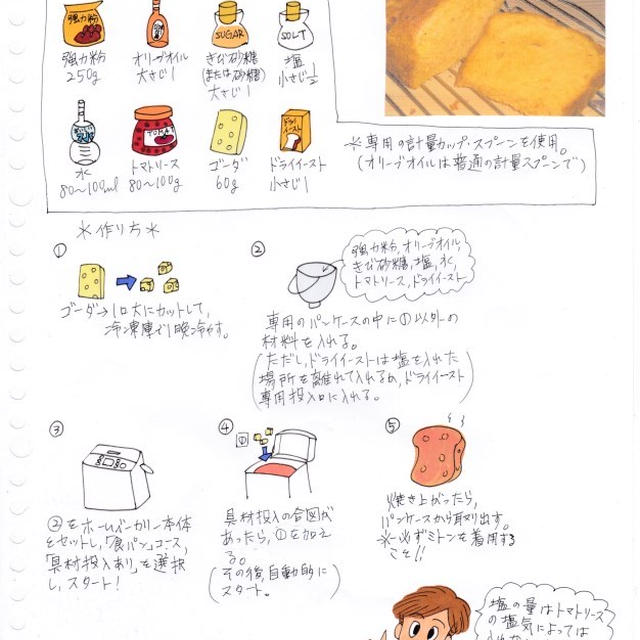 強力粉
SUGAR
SOLT
強力粉
250g
オリーブオイル
大さじ1
きび砂糖
(または砂糖)
大さじ1
塩
小さじ1/2
TOMATO
ドライイースト
水
80〜100ml
トマトソース
80〜100g
ゴーダ
60g
ドライイースト
小さじ1
※専用の計量カップ・スプーンを使用。
(オリーブオイルは普通の計量スプーンで)
＊作り方＊
①
ゴーダ→1口大にカットして、
冷凍庫で1晩冷やす。
②
強力粉,オリーブオイル,
きび砂糖,塩,水,
トマトソース,ドライイースト
専用のパンケースの中に①以外の
材料を入れる。
(ただし,ドライイーストは塩を入れた
場所を離れて入れるか,ドライイースト
専用投入口に入れる。)
③
②をホームベーカリー本体
にセットし,「食パン」コース,
「具材投入あり」を選択
し,スタート!
④
①
具材投入の合図が
あったら,①を加え
る。
(その後,自動的に
スタート。)
⑤
焼き上がったら,
パンケースから取り出す。
※必ずミトンを着用する
こと!!
塩の量はトマトソース
の塩気によっては